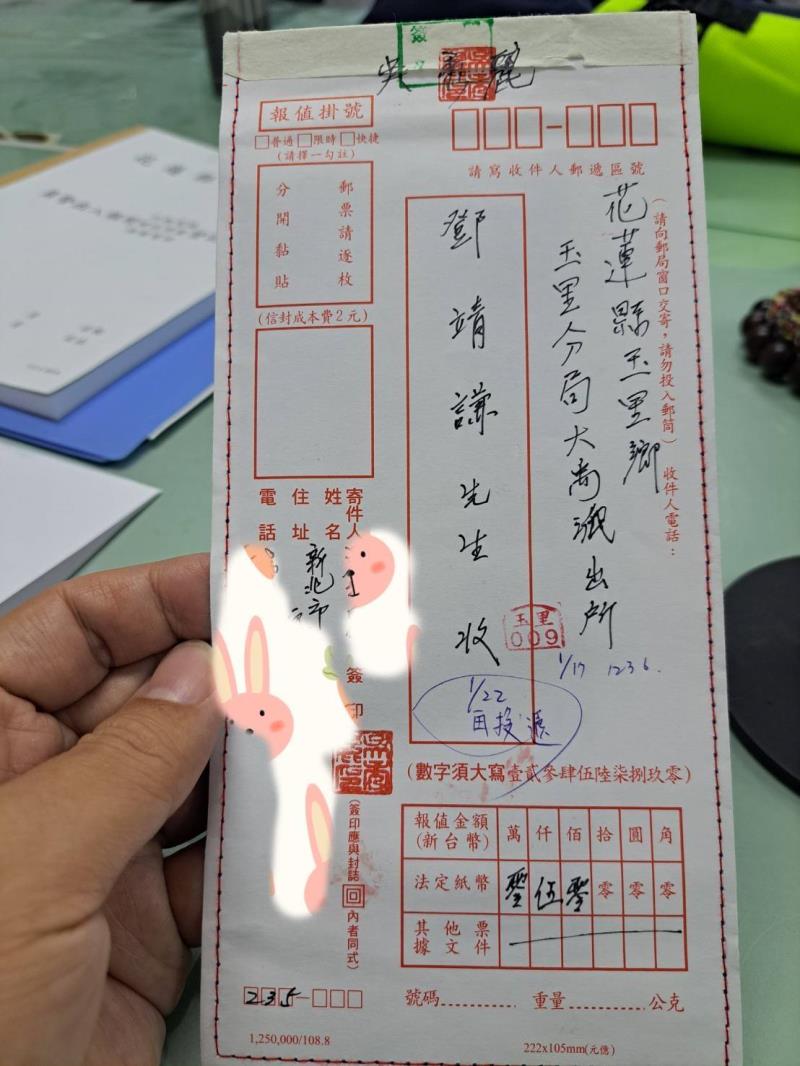 簽
吳 麗
報值掛號
□普通□限時□快捷
(請擇一勾註)
郵票請逐枚
分開黏貼
(信封成本費2元)
請寫收件人郵遞區號
(請向郵局窗口交寄,請勿投入郵筒) 收件人電話:
花蓮縣玉里鄉
玉里分局大禹派出所
鄧靖謙先生收
玉里
009
1/17 1236.
1/22
再投遞
寄件人
姓名
住址
電話
新北市
簽印
(簽印應與封誌回內者同式)
(數字須大寫壹貳參肆伍陸柒捌玖零)
報值金額
(新台幣)
萬 仟 佰 拾 圓 角
法定紙幣 零 伍 零 零 零 零
其他票
據文件
235-□□□
號碼 重量 公克
1,250,000/108.8
222x105mm(元億)